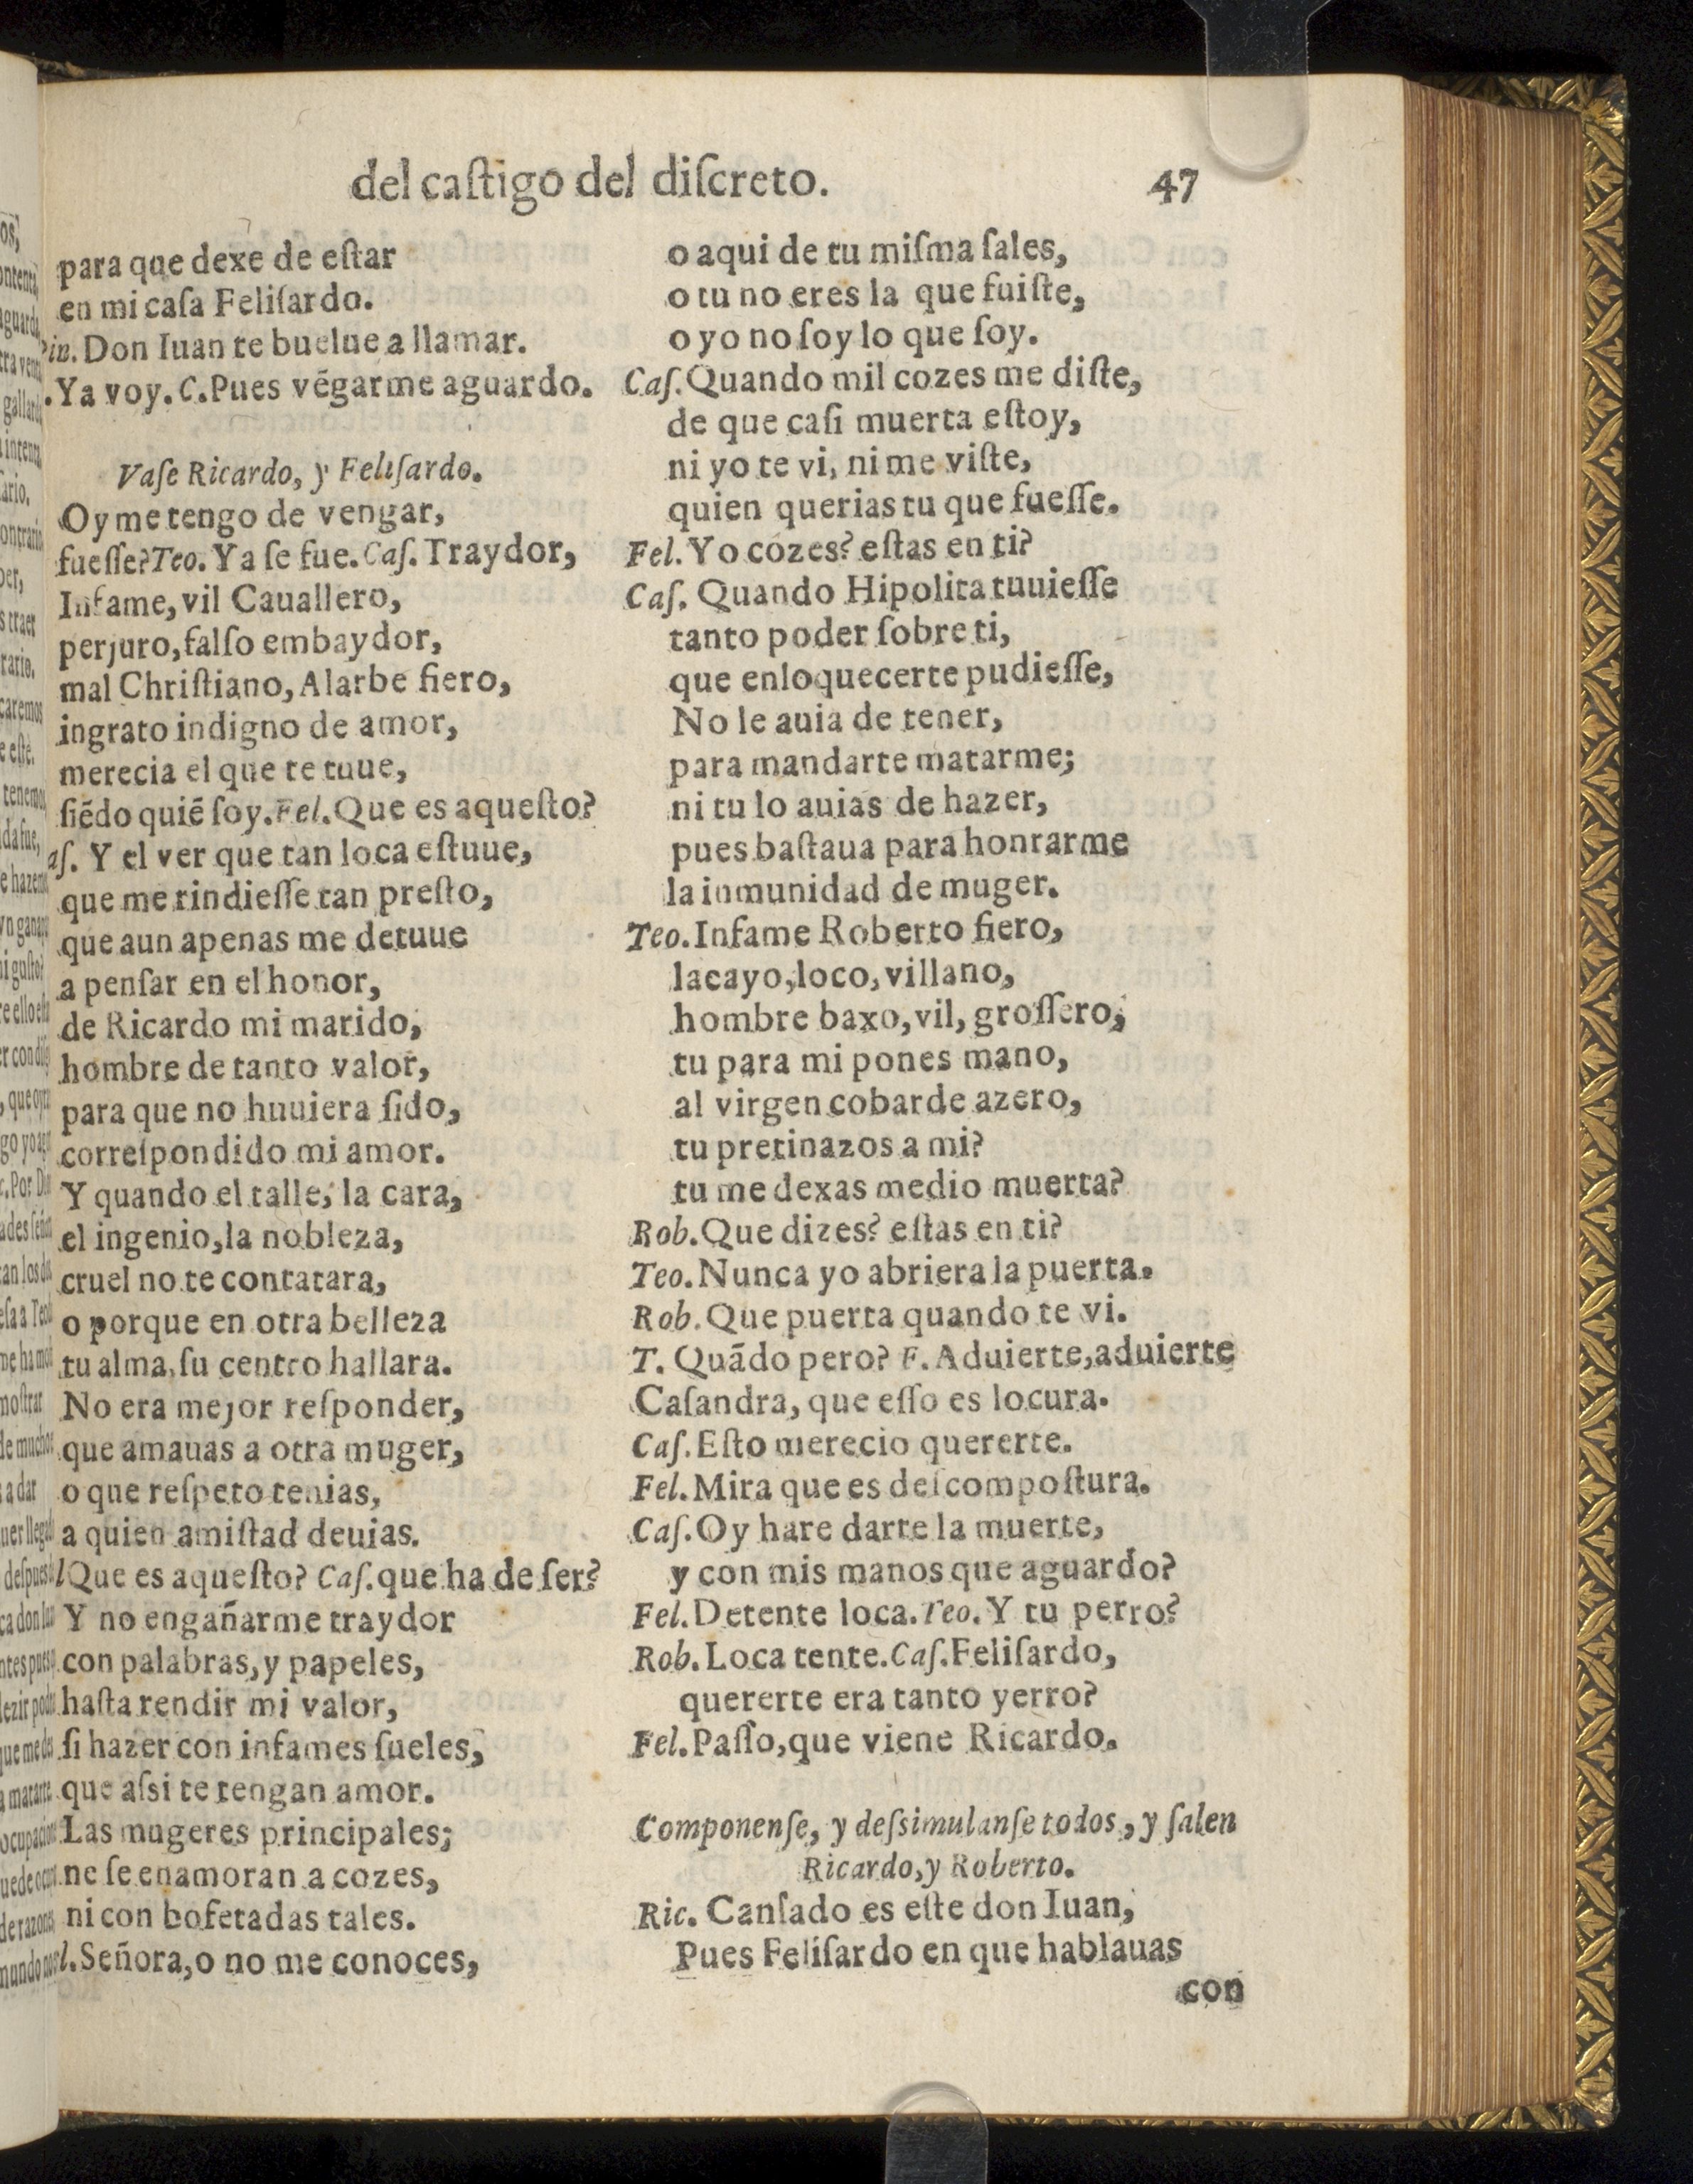 del caſtigo del diſcreto. 47
para que dexe de eſtar
en mi caſa Feliſardo.
in. Don Iuan te buelue a llamar.
.Ya voy. C. Pues vēgarme aguardo.
Vaſe Ricardo, y Feliſardo.
Oy me tengo de vengar,
fueſſe? Teo. Ya ſe fue. Caſ. Traydor,
Infame, vil Cauallero,
perjuro, falſo embaydor,
mal Chriſtiano, Alarbe fiero,
ingrato indigno de amor,
merecia el que te tuue,
ſiēdo quiē ſoy. Fel. Que es aqueſto?
aſ. Y el ver que tan loca eſtuue,
que me rindieſſe tan preſto,
que aun apenas me detuue
a penſar en el honor,
de Ricardo mi marido,
hombre de tanto valor,
para que no huuiera ſido,
correſpondido mi amor.
Y quando el talle, la cara,
el ingenio, la nobleza,
cruel no te contatara,
o porque en otra belleza
tu alma ſu centro hallara.
No era mejor reſponder,
que amauas a otra muger,
o que reſpeto tenias,
a quien amiſtad deuias.
l Que es aqueſto? Caſ. que ha de ſer?
Y no engañarme traydor
con palabras, y papeles,
haſta rendir mi valor,
ſi hazer con infames ſueles,
que aſsi te tengan amor.
Las mugeres principales;
ne ſe enamoran a cozes,
ni con bofetadas tales.
l. Señora, o no me conoces,
o aqui de tu miſma ſales,
o tu no eres la que fuiſte,
o yo no ſoy lo que ſoy.
Caſ. Quando mil cozes me diſte,
de que caſi muerta eſtoy,
ni yo te vi, ni me viſte,
quien querias tu que fueſſe.
Fel. Yo cozes? eſtas en ti?
Caſ. Quando Hipolita tuuieſſe
tanto poder ſobre ti,
que enloquecerte pudieſſe,
No le auia de tener,
para mandarte matarme;
ni tu lo auias de hazer,
pues baſtaua para honrarme
la inmunidad de muger.
Teo. Infame Roberto fiero,
lacayo, loco, villano,
hombre baxo, vil, groſſero,
tu para mi pones mano,
al virgen cobarde azero,
tu pretinazos a mi?
tu me dexas medio muerta?
Rob. Que dizes? eſtas en ti?
Teo. Nunca yo abriera la puerta.
Rob. Que puerta quando te vi.
T. Quādo pero? F. Aduierte, aduierte
Caſandra, que eſſo es locura.
Caſ. Eſto merecio quererte.
Fel. Mira que es deſcompoſtura.
Caſ. Oy hare darte la muerte,
y con mis manos que aguardo?
Fel. Detente loca. Teo. Y tu perro?
Rob. Loca tente. Caſ. Feliſardo,
quererte era tanto yerro?
Fel. Paſſo, que viene Ricardo.
Componenſe, y deſsimulanſe todos, y ſalen
Ricardo, y Roberto.
Ric. Canſado es eſte don Iuan,
Pues Feliſardo en que hablauas
con